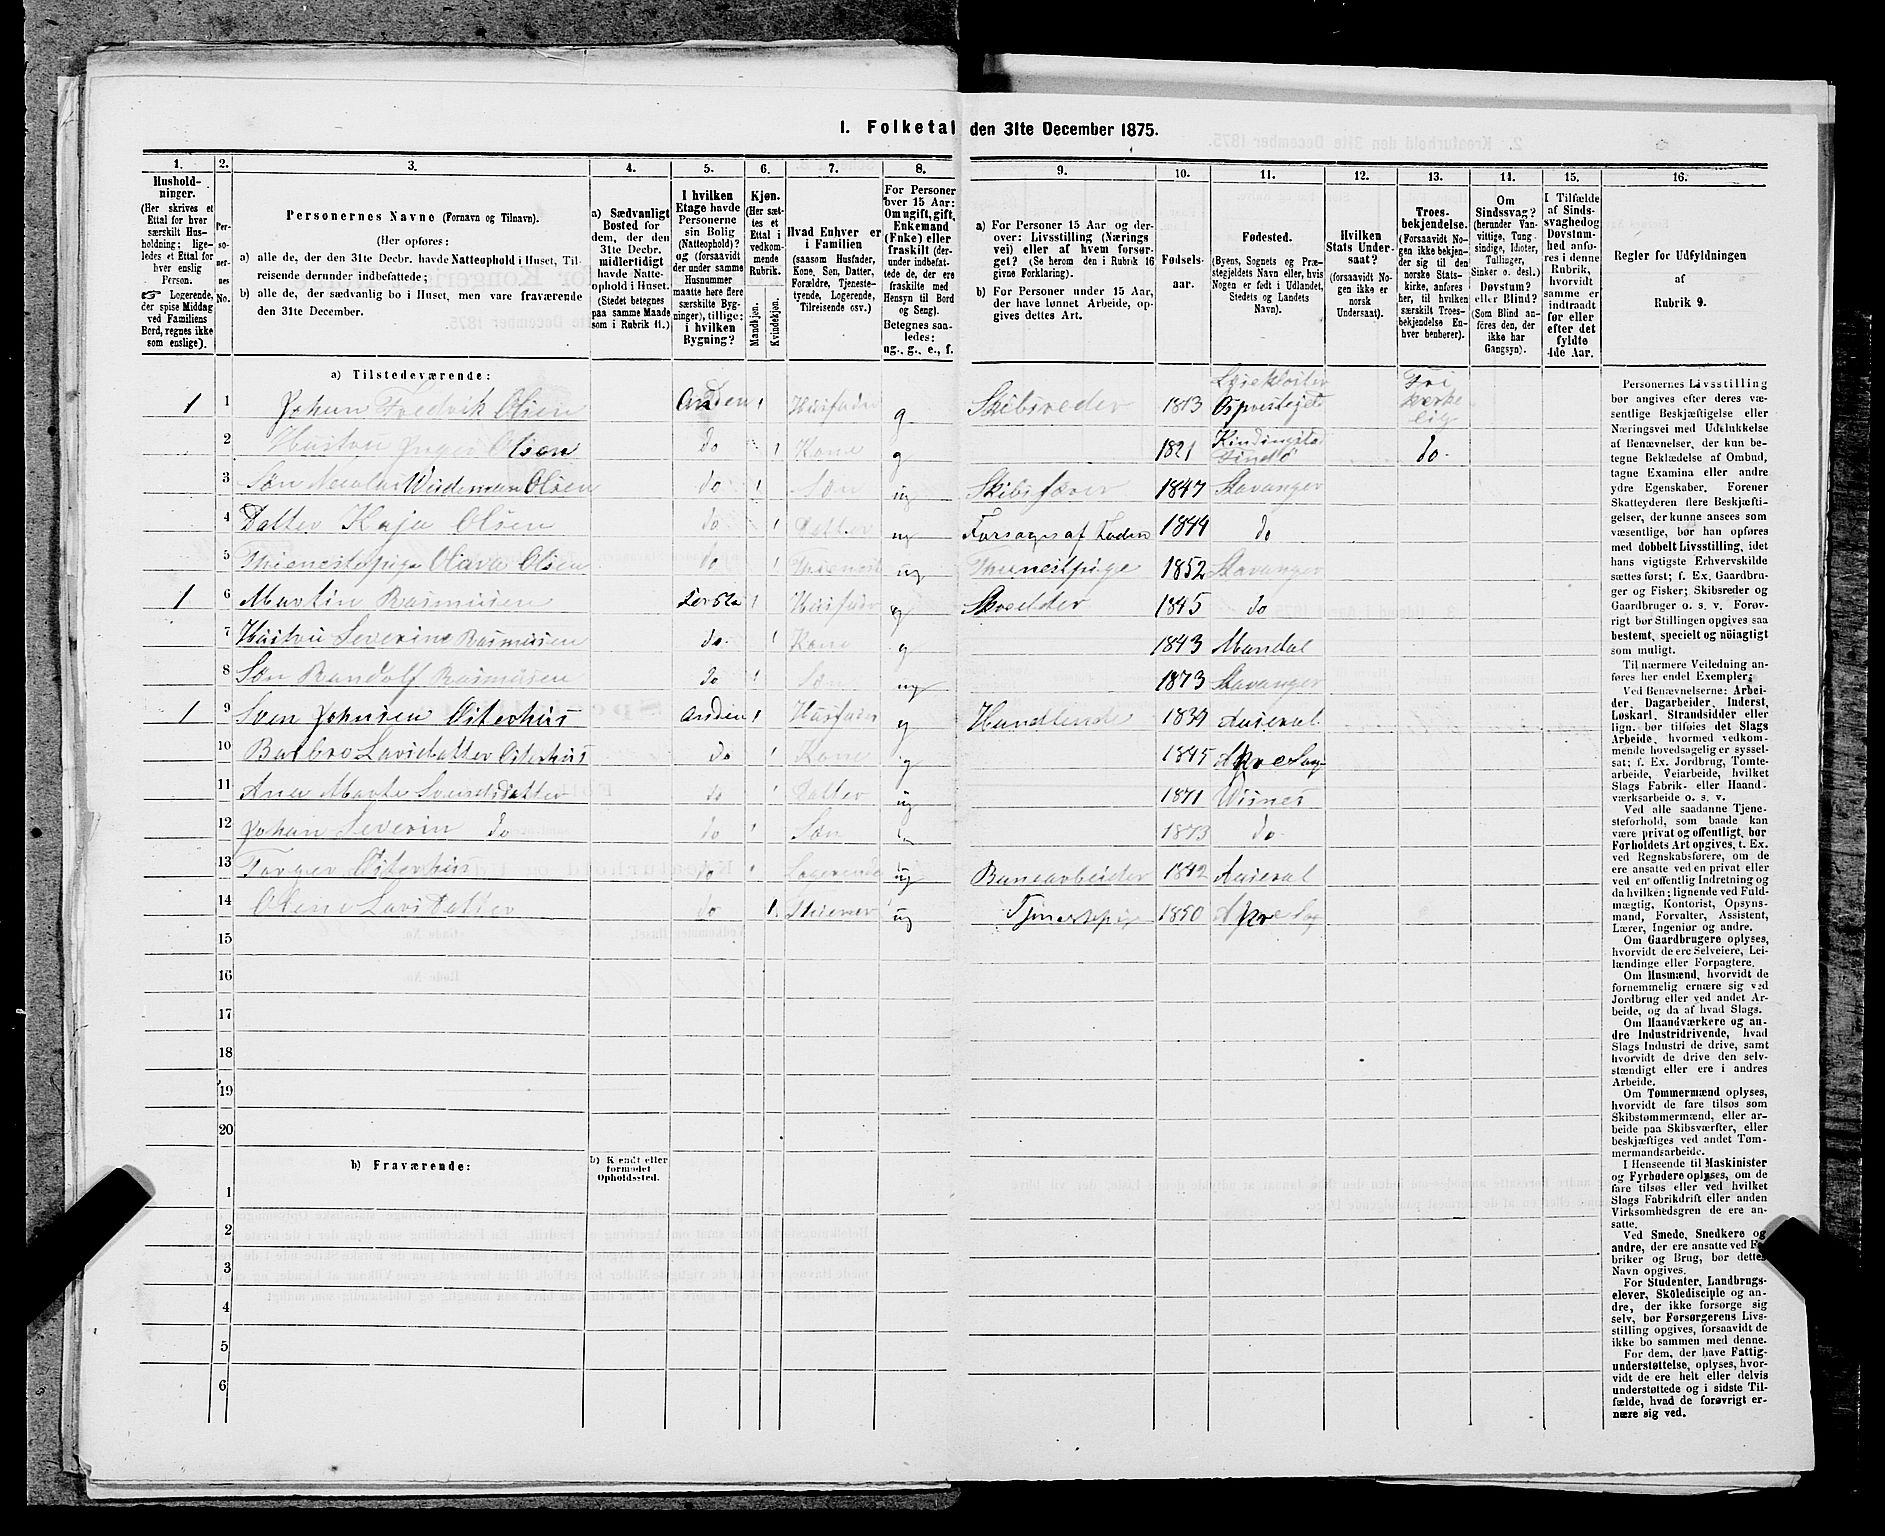 1. Folketal den 31te December 1875.
1. 2. 3. 4. 5. 6. 7. 8. 9. 10. 11. 12. 13. 14. 15. 16.
Hushold-
ninger.
(Her skrives et
Ettal for hver
særskilt Hus-
holdning; lige-
ledes et Ettal for
hver enslig
Person.
☞ Logerende,
der spise Middag
ved Familiens
Bord, regnes ikke
som enslige).
Per-
so-
ner-
nes
No.
Personernes Navne (Fornavn og Tilnavn).
(Her opføres:
a) alle de, der den 31te Decbr. havde Natteophold i Huset, Til-
reisende derunder indbefattede;
b) alle de, der sædvanlig bo i Huset, men vare fraværende
den 31te December.
a) Sædvanligt
Bosted for
dem, der den
31te Decbr.
midlertidigt
havde Natte-
ophold i Huset.
(Stedet betegnes
paa samme Maade
som i Rubrik 11.)
I hvilken
Etage havde
Personerne
sin Bolig
(Natteophold)?
og (forsaavidt
der under samme
Husnummer
maatte høre flere
særskilte Byg-
ninger), tillige:
i hvilken
Bygning?
Kjøn.
(Her sæt-
tes et
Ettal i
vedkom-
mende
Rubrik.
Mandkjøn.
Kvindekjøn.
Hvad Enhver er
i Familien
(saasom Husfader,
Kone, Søn, Datter,
Forældre, Tjeneste-
tyende, Logerende,
Tilreisende osv.)
For Personer
over 15 Aar:
Om ugift, gift,
Enkemand
(Enke) eller
fraskilt (der-
under indbefat-
tede de, der ere
fraskilte med
Hensyn til Bord
og Seng).
Betegnes saa-
ledes:
ug., g., e., f.
a) For Personer 15 Aar og der-
over: Livsstilling (Nærings
vei) eller af hvem forsør-
get? (Se herom den i Rubrik 16
givne Forklaring).
b) For Personer under 15 Aar,
der have lønnet Arbeide, op-
gives dettes Art.
Fødsels-
aar.
Fødested.
(Byens, Sognets og Præ-
stegjeldets Navn eller, hvis
Nogen er født i Udlandet,
Stedets og Landets
Navn).
Hvilken
Stats Under-
saat?
(forsaavidt No-
gen ikke er
norsk
Undersaat).
Troes-
bekjendelse.
(Forsaavidt No-
gen ikke bekjen-
der sig til den
norske Stats-
kirke, anføres
her, til hvilken
særskilt Troes-
bekjendelse En-
hver henhører).
Om
Sindssvag?
(herunder Van-
vittige, Tung-
sindige, Idioter,
Tullinger,
Sinker o. desl.)
Døvstum?
eller Blind?
(Som Blind an-
føres den, der
ikke har
Gangsyn).
I Tilfælde
af Sinds-
svaghed og
Døvstum-
hed anfø-
res i denne
Rubrik,
hvorvidt
samme er
indtraadt
før eller
efter det
fyldte
4de Aar.
Regler for Udfyldningen
af
Rubrik 9.
a) Tilstedeværende:
1 1 Johan Fredrik Olsen Anden 1 Husfader g Skibsreder 1813 Lysekloster Ospresteget Fri kirkelig
2 Hustru Inger Olsen do 1 Kone g 1821 do.
3 Søn Nicolai Wiideman Olsen do 1 Søn ug Skibsfører 1847 Stavanger
4 Datter Kaja Olsen do 1 Datter ug Forsørges af Faderen 1844 do
5 Thienestepige Olava Olsen do 1 Thienest ug Thienestpige 1852 Stavanger
1 6 Martin Rasmusen Første 1 Husfader g Skredder 1845 do
7 Hustru Severine Rasmusen do. 1 Kone g 1843 Mandal
8 Søn Randolf Rasmusen do 1 Søn ug 1873 Stavanger
1 9 Sven Johnsen Østerhus Anden 1 Husfader g Handlende 1839 Aaseral
10 Barbro Larsdatter Østerhus do 1 Kone g 1845
11 Ane Marte Svendsdatter do 1 Datter ug 1871 Wisnes
12 Johan Severin do do 1 Søn 1873 do
13 Torger Østerhus do 1 Logerende ug Banearbeider 1842 Aaseral
14 Olene Larsdatter do 1. Thiener ug Tjenestepige 1850
15
16
17
18
19
20
b) Fraværende:
b) Kjendt eller
formodet
Opholdssted.
1
2
3
4
5
6
Personernes Livsstilling
bør angives efter deres væ-
sentlige Beskjæftigelse eller
Næringsvei med Udelukkelse
af Benævnelser, der kun be-
tegne Beklædelse af Ombud,
tagne Examina eller andre
ydre Egenskaber. Forener
Skatteyderen flere Beskjæfti-
gelser, der kunne ansees som
væsentlige, bør han opføres
med dobbelt Livsstilling, idet
hans vigtigste Erhvervskilde
sættes først; f. Ex. Gaardbru-
ger og Fisker; Skibsreder og
Gaardbruger o. s. v. Forøv-
rigt bør Stillingen opgives saa
bestemt, specielt og nøiagtigt
som muligt.
Til nærmere Veiledning an-
føres her endel Exempler:
Ved Benævnelserne: Arbei-
der, Dagarbeider, Inderst,
Løskarl, Strandsidder eller
lign. bør tilføies det Slags
Arbeide, hvormed vedkom-
mende hovedsagelig er syssel-
sat; f. Ex. Jordbrug, Tomte-
arbeide, Veiarbeide, hvilket
Slags Fabrik- eller Haand-
værksarbeide o. s. v.
Ved alle saadanne Tjene-
steforhold, som baade kan
være privat og offentligt, bør
Forholdets Art opgives, t. Ex.
ved Regnskabsførere, om de
ere ansatte ved en privat eller
ved en offentlig Indretning og
da hvilken; lignende ved Fuld-
mægtig, Kontorist, Opsyns-
mand, Forvalter, Assistent,
Lærer, Ingeniør og andre.
Om Gaardbrugere oplyses,
hvorvidt de ere Selveiere, Lei-
lændinge eller Forpagtere.
Om Husmænd, hvorvidt de
fornemmelig ernære sig ved
Jordbrug eller ved andet Ar-
beide, og da af hvad Slags.
Om Haandværkere og an-
dre Industridrivende, hvad
Slags Industri de drive, samt
hvorvidt de drive den selv-
stændigt eller ere i andres
Arbeide.
Om Tømmermænd oplyses,
hvorvidt de fare tilsøs som
Skibstømmermænd, eller ar-
beide paa Skibsværfter, eller
beskjæftiges ved andet Tøm-
mermandsarbeide.
I Henseende til Maskinister
og Fyrbødere oplyses, om de
fare tilsøs eller ved hvilket
Slags Fabrikdrift eller anden
Virksomhedsgren de ere an-
satte.
Ved Smede, Snedkere og
andre, der ere ansatte ved Fa-
briker og Brug, bør dettes
Navn opgives.
For Studenter, Landbrugs-
elever, Skoledisciple og an-
dre, der ikke forsørge sig
selv, bør Forsørgerens Livs-
stilling opgives, forsaavidt de
ikke bo sammen med denne.
For dem, der have Fattig-
understøttelse, oplyses, hvor-
vidt de ere helt eller delvis
understøttede og i sidste Til-
fælde, hvad de forøvrigt er-
nære sig ved.